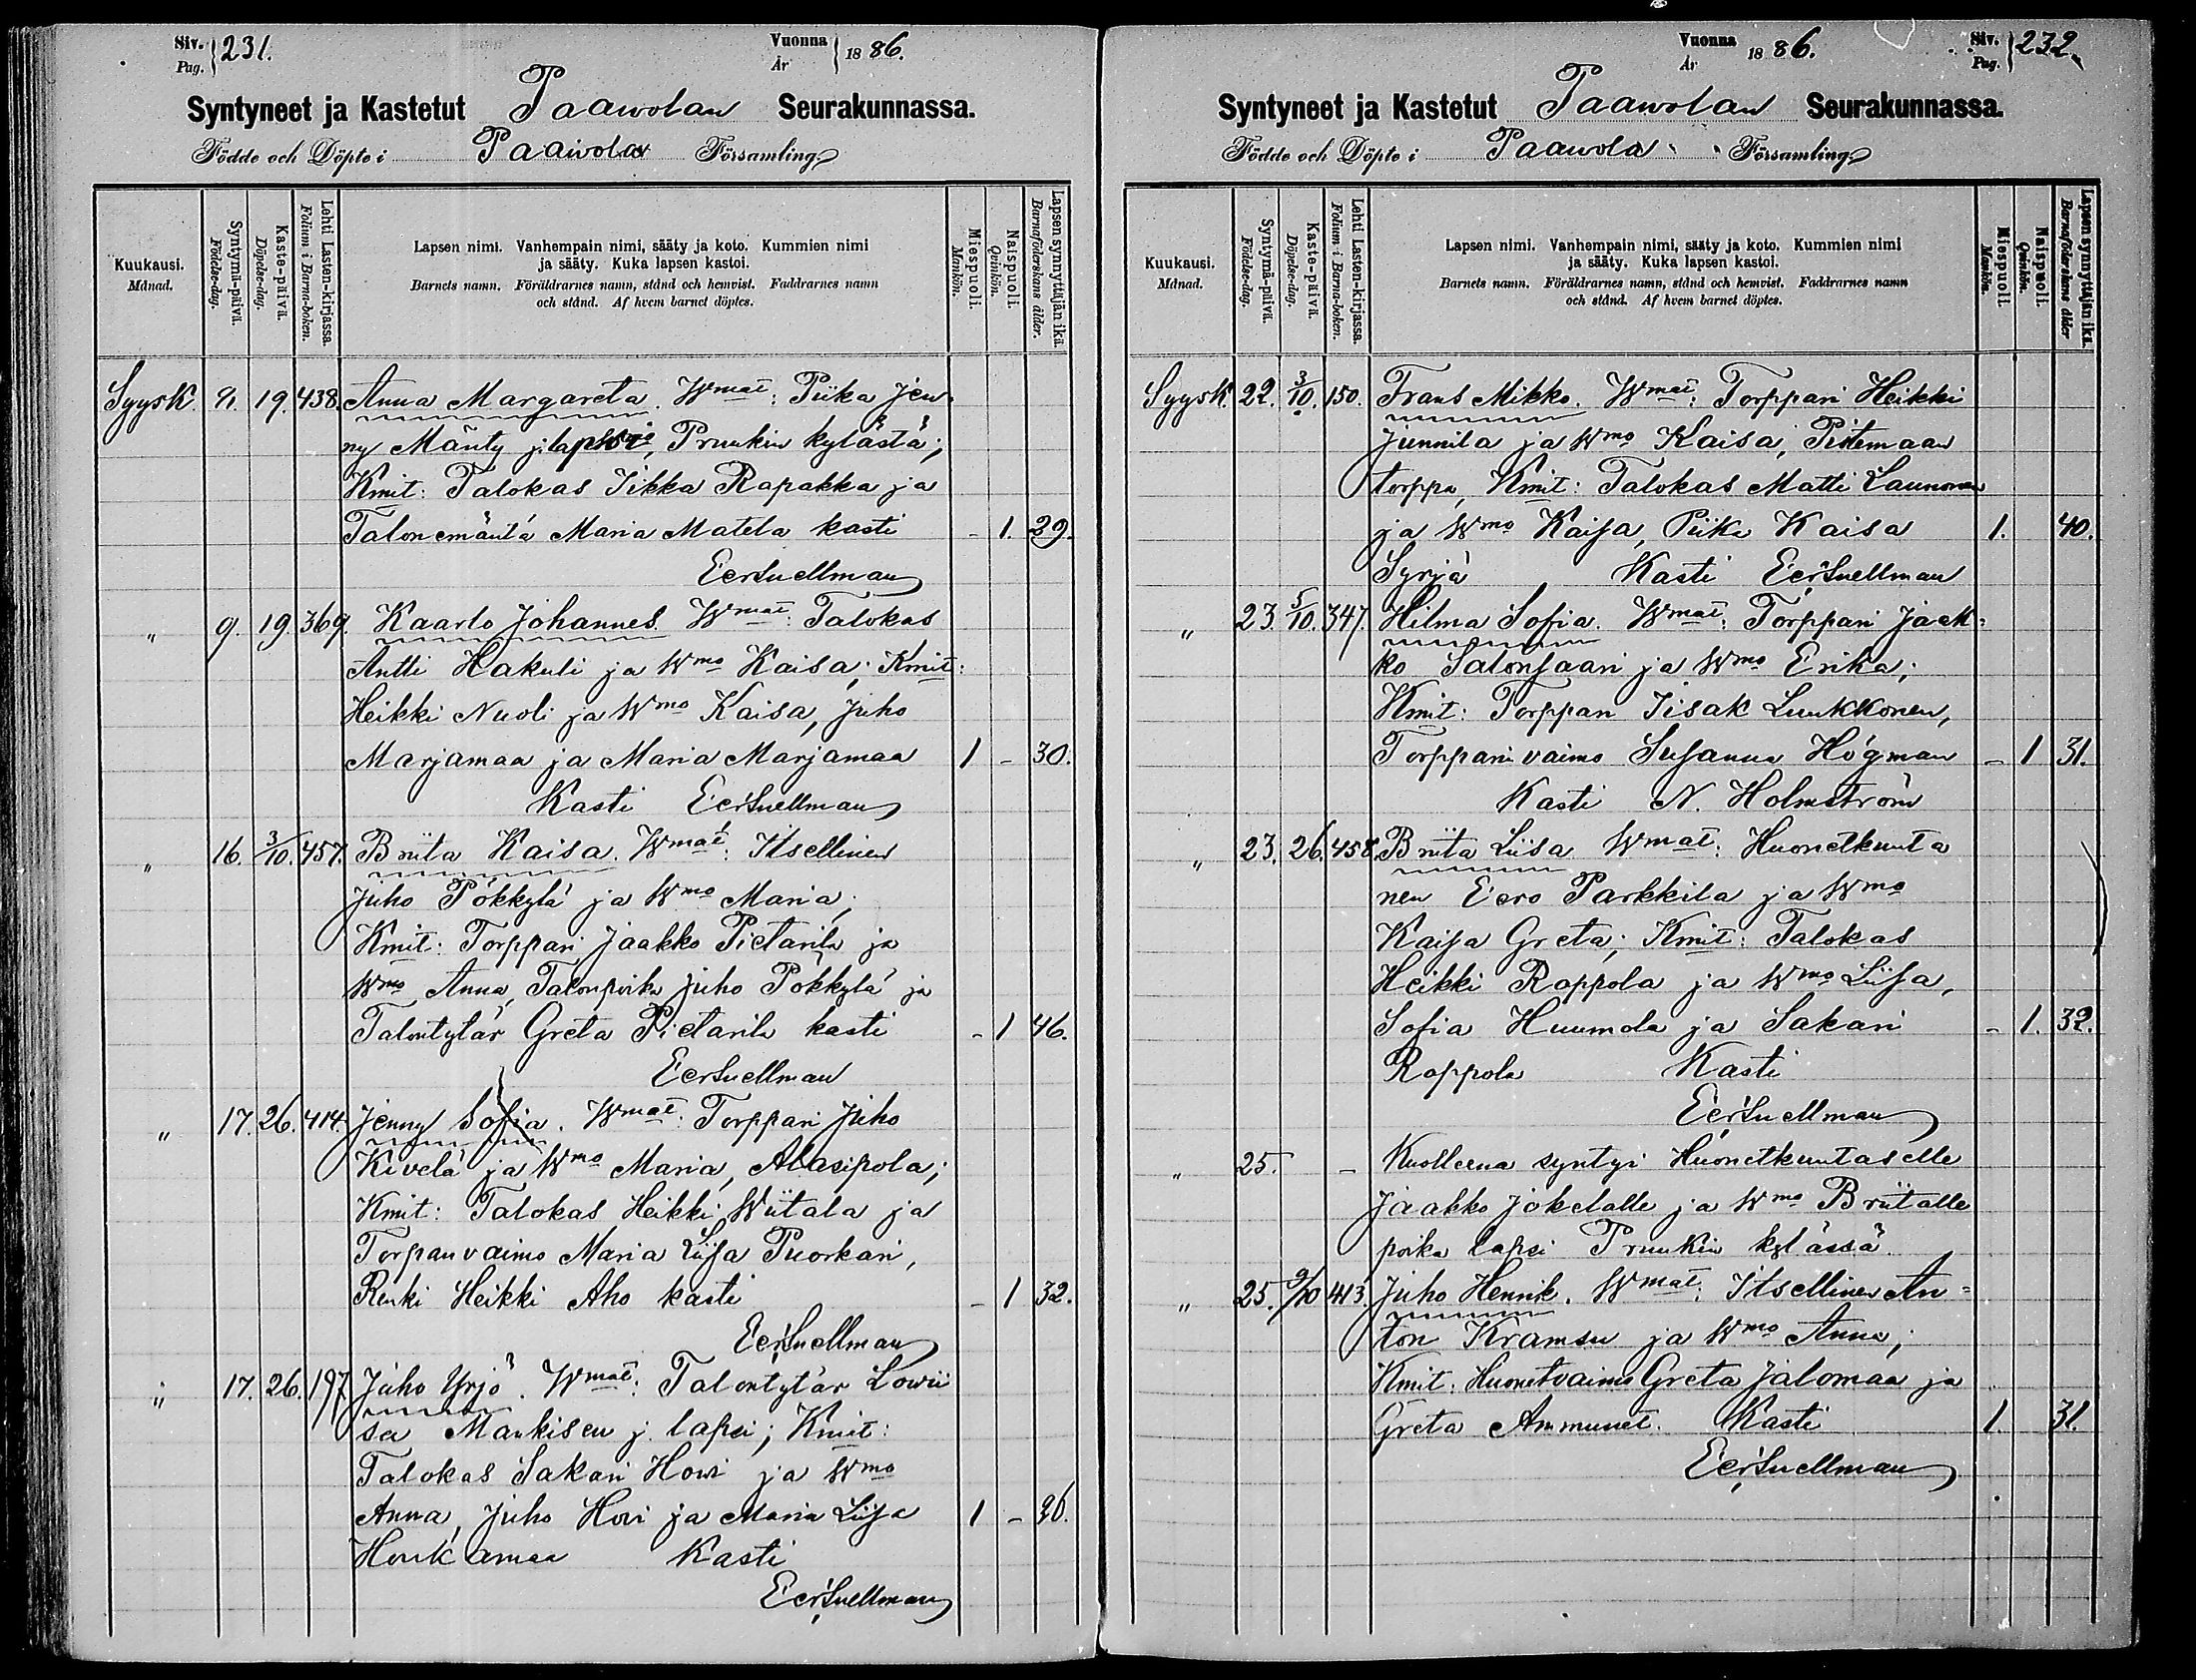 Siv. Pag. 231.
Vuonna År 1886.
Syntyneet ja Kastetut Paawolan Seurakunnassa.
Födde och Döpte i Paawola Församling
Kuukausi. Månad.
Syntymä-päivä. Födelse-dag.
Kaste-päivä. Döpelse-dag.
Lehti Lasten-kirjassa. Folium i Barna-boken.
Lapsen nimi. Vanhempain nimi, sääty ja koto. Kummien nimi
ja sääty. Kuka lapsen kastoi.
Barnets namn. Föräldrarnes namn, stånd och hemvist. Faddrarnes namn
och stånd. Af hvem barnet döptes.
Miespuoli. Mankön.
Naispuoli. Qvinkön.
Lapsen synnyttäjän ikä. Barnaföderskans ålder.
Syysk. 9. 19. 438. Anna Margareta. Wmat: Piika Jen-
ny Mänty j. lapsi, Pruukin kylästä;
Kmit: Talokas Iikka Rapakka ja
Talonemäntä Maria Matela kasti - 1. 29.
EerSnellman
" 9. 19. 369. Kaarlo Johannes. Wmat: Talokas
Antti Hakuli ja Wmo Kaisa; Kmit:
Heikki Nuoli ja Wmo Kaisa, Juho
Marjamaa ja Maria Marjamaa 1 - 30.
Kasti EerSnellman
" 16. 3/10. 457. Briita Kaisa. Wmat: Itsellinen
Juho Pökkylä ja Wmo Maria;
Kmit: Torppari Jaakko Pietarila ja
Wmo Anna, Talonpoika Juho Pökkylä ja
Talontytär Greta Pietarila kasti - 1 46.
EerSnellman
" 17. 26. 414. Jenny Sofia. Wmat: Torppari Juho
Kivelä ja Wmo Maria, Alasipola;
Kmit: Talokas Heikki Wiitala ja
Torpanvaimo Maria Liisa Puorkari,
Renki Heikki Aho kasti - 1 32.
EerSnellman
" 17. 26. 197 Juho Yrjö. Wmat: Talontytär Lowii
sa Mankisen j. lapsi; Kmit:
Talokas Sakari Howi ja Wmo
Anna, Juho Howi ja Maria Liisa 1 - 26.
Honkamaa Kasti
EerSnellman
Vuonna År 1886.
Siv. Pag. 232.
Syntyneet ja Kastetut Paawolan Seurakunnassa.
Födde och Döpte i Paawola Församling
Kuukausi. Månad.
Syntymä-päivä. Födelse-dag.
Kaste-päivä. Döpelse-dag.
Lehti Lasten-kirjassa. Folium i Barna-boken.
Lapsen nimi. Vanhempain nimi, sääty ja koto. Kummien nimi
ja sääty. Kuka lapsen kastoi.
Barnets namn. Föräldrarnes namn, stånd och hemvist. Faddrarnes namn
och stånd. Af hvem barnet döptes.
Miespuoli. Mankön.
Naispuoli. Qvinkön.
Lapsen synnyttäjän ikä. Barnaföderskans ålder
Syysk. 22. 3/10. 150. Frans Mikko. Wmat: Torppari Heikki
Junnila ja Wmo Kaisa,
torppa, Kmit: Talokas Matti Launonen
ja Wmo Kaisa, Piika Kaisa 1. 40.
Syrjä Kasti EerSnellman
" 23. 5/10. 347. Hilma Sofia. Wmat: Torppari Jaak-
ko Salonsaari ja Wmo Erika;
Kmit: Torppari Iisak Luukkonen,
Torpparinvaimo Susanna Högman - 1 31.
Kasti N. Holmström
" 23. 26. 458. Briita Liisa Wmat: Huonetkunta
nen Eero Parkkila ja Wmo
Kaisa Greta; Kmit: Talokas
Heikki Rappola ja Wmo Liisa,
Sofia Huumola ja Sakari - 1. 32.
Rappola Kasti
EerSnellman
" 25. - Kuolleena syntyi Huonetkuntaselle
Jaakko Jokelalle ja Wmo Briitalle
poika lapsi Pruukin kylässä
" 25. 9/10 413. Juho Henrik. Wmat: Itsellinen An-
ton Kramsu ja Wmo Anna;
Kmit: Huonetvaimo Greta Jalomaa ja
Greta Ammunet. Kasti 1. 31.
EerSnellman